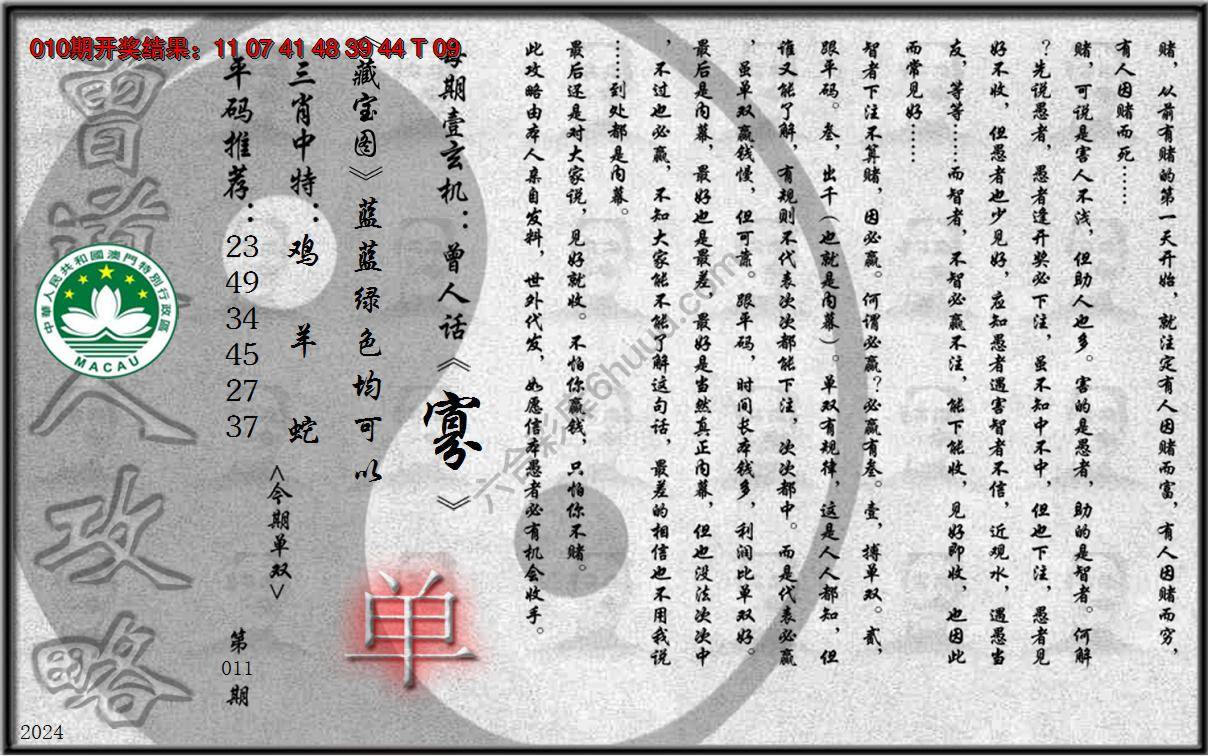 010期开奖结果：11 07 41 48 39 44 T 09
赌，从前有赌的第一天开始，就注定有人因赌而富，有人因赌而穷，
有人因赌而死……
赌，可说是害人不浅，但助人也多。害的是愚者，助的是智者。何解
？先说愚者，愚者逢开奖必下注，虽不知中不中，但也下注，愚者见
好不收，但愚者也少见好，应知愚者遇害智者不信，近观水，遇愚当
友，等等……而智者，不智必赢不注，能下能收，见好即收，也因此
而常见好……
智者下注不算赌，因必赢。何谓必赢？必赢有叁。壹，搏单双。贰，
跟平码。叁，出千（也就是内幕）。单双有规律，这是人人都知，但
谁又能了解，有规则不代表次次都能下注，次次都中。而是代表必赢
，虽单双赢钱慢，但可靠。跟平码，时间长本钱多，利润比单双好。
最后是内幕，最好也是最差，最好是当然真正内幕，但也没法次次中
，不过也必赢，不知大家能不能了解这句话，最差的相信也不用我说
……到处都是内幕。
最后还是对大家说，见好就收。不怕你赢钱，只怕你不赌。
此攻略由本人亲自发料，世外代发，如愿信本愚者必有机会收手。
每期壹玄机：曾人话《寡》
《藏宝图》蓝蓝绿色均可以
三肖中特：鸡 羊 蛇
<今期单双>
单
平码推荐：
23
49
34
45
27
37
第
011
期
曾道人攻略
中華人民共和國澳門特別行政區
MACAU
六合彩库6huuu.com
2024